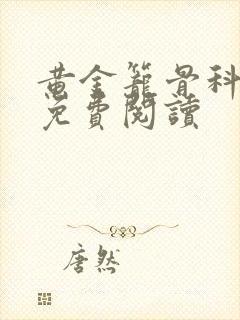 黄金籠骨科
免費閱讀
唐然